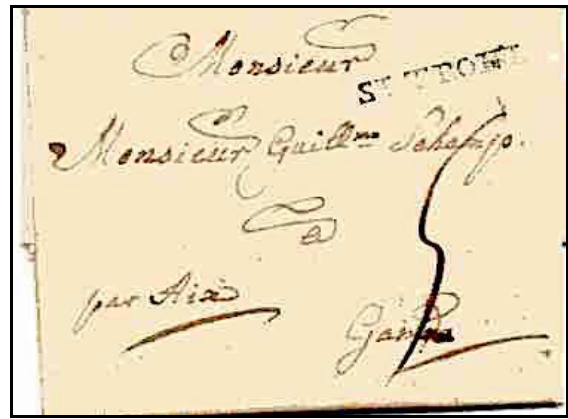 Monsieur
ST TRON
Monsieur Guill.me Schamp.
a
par Aix
Gand
5